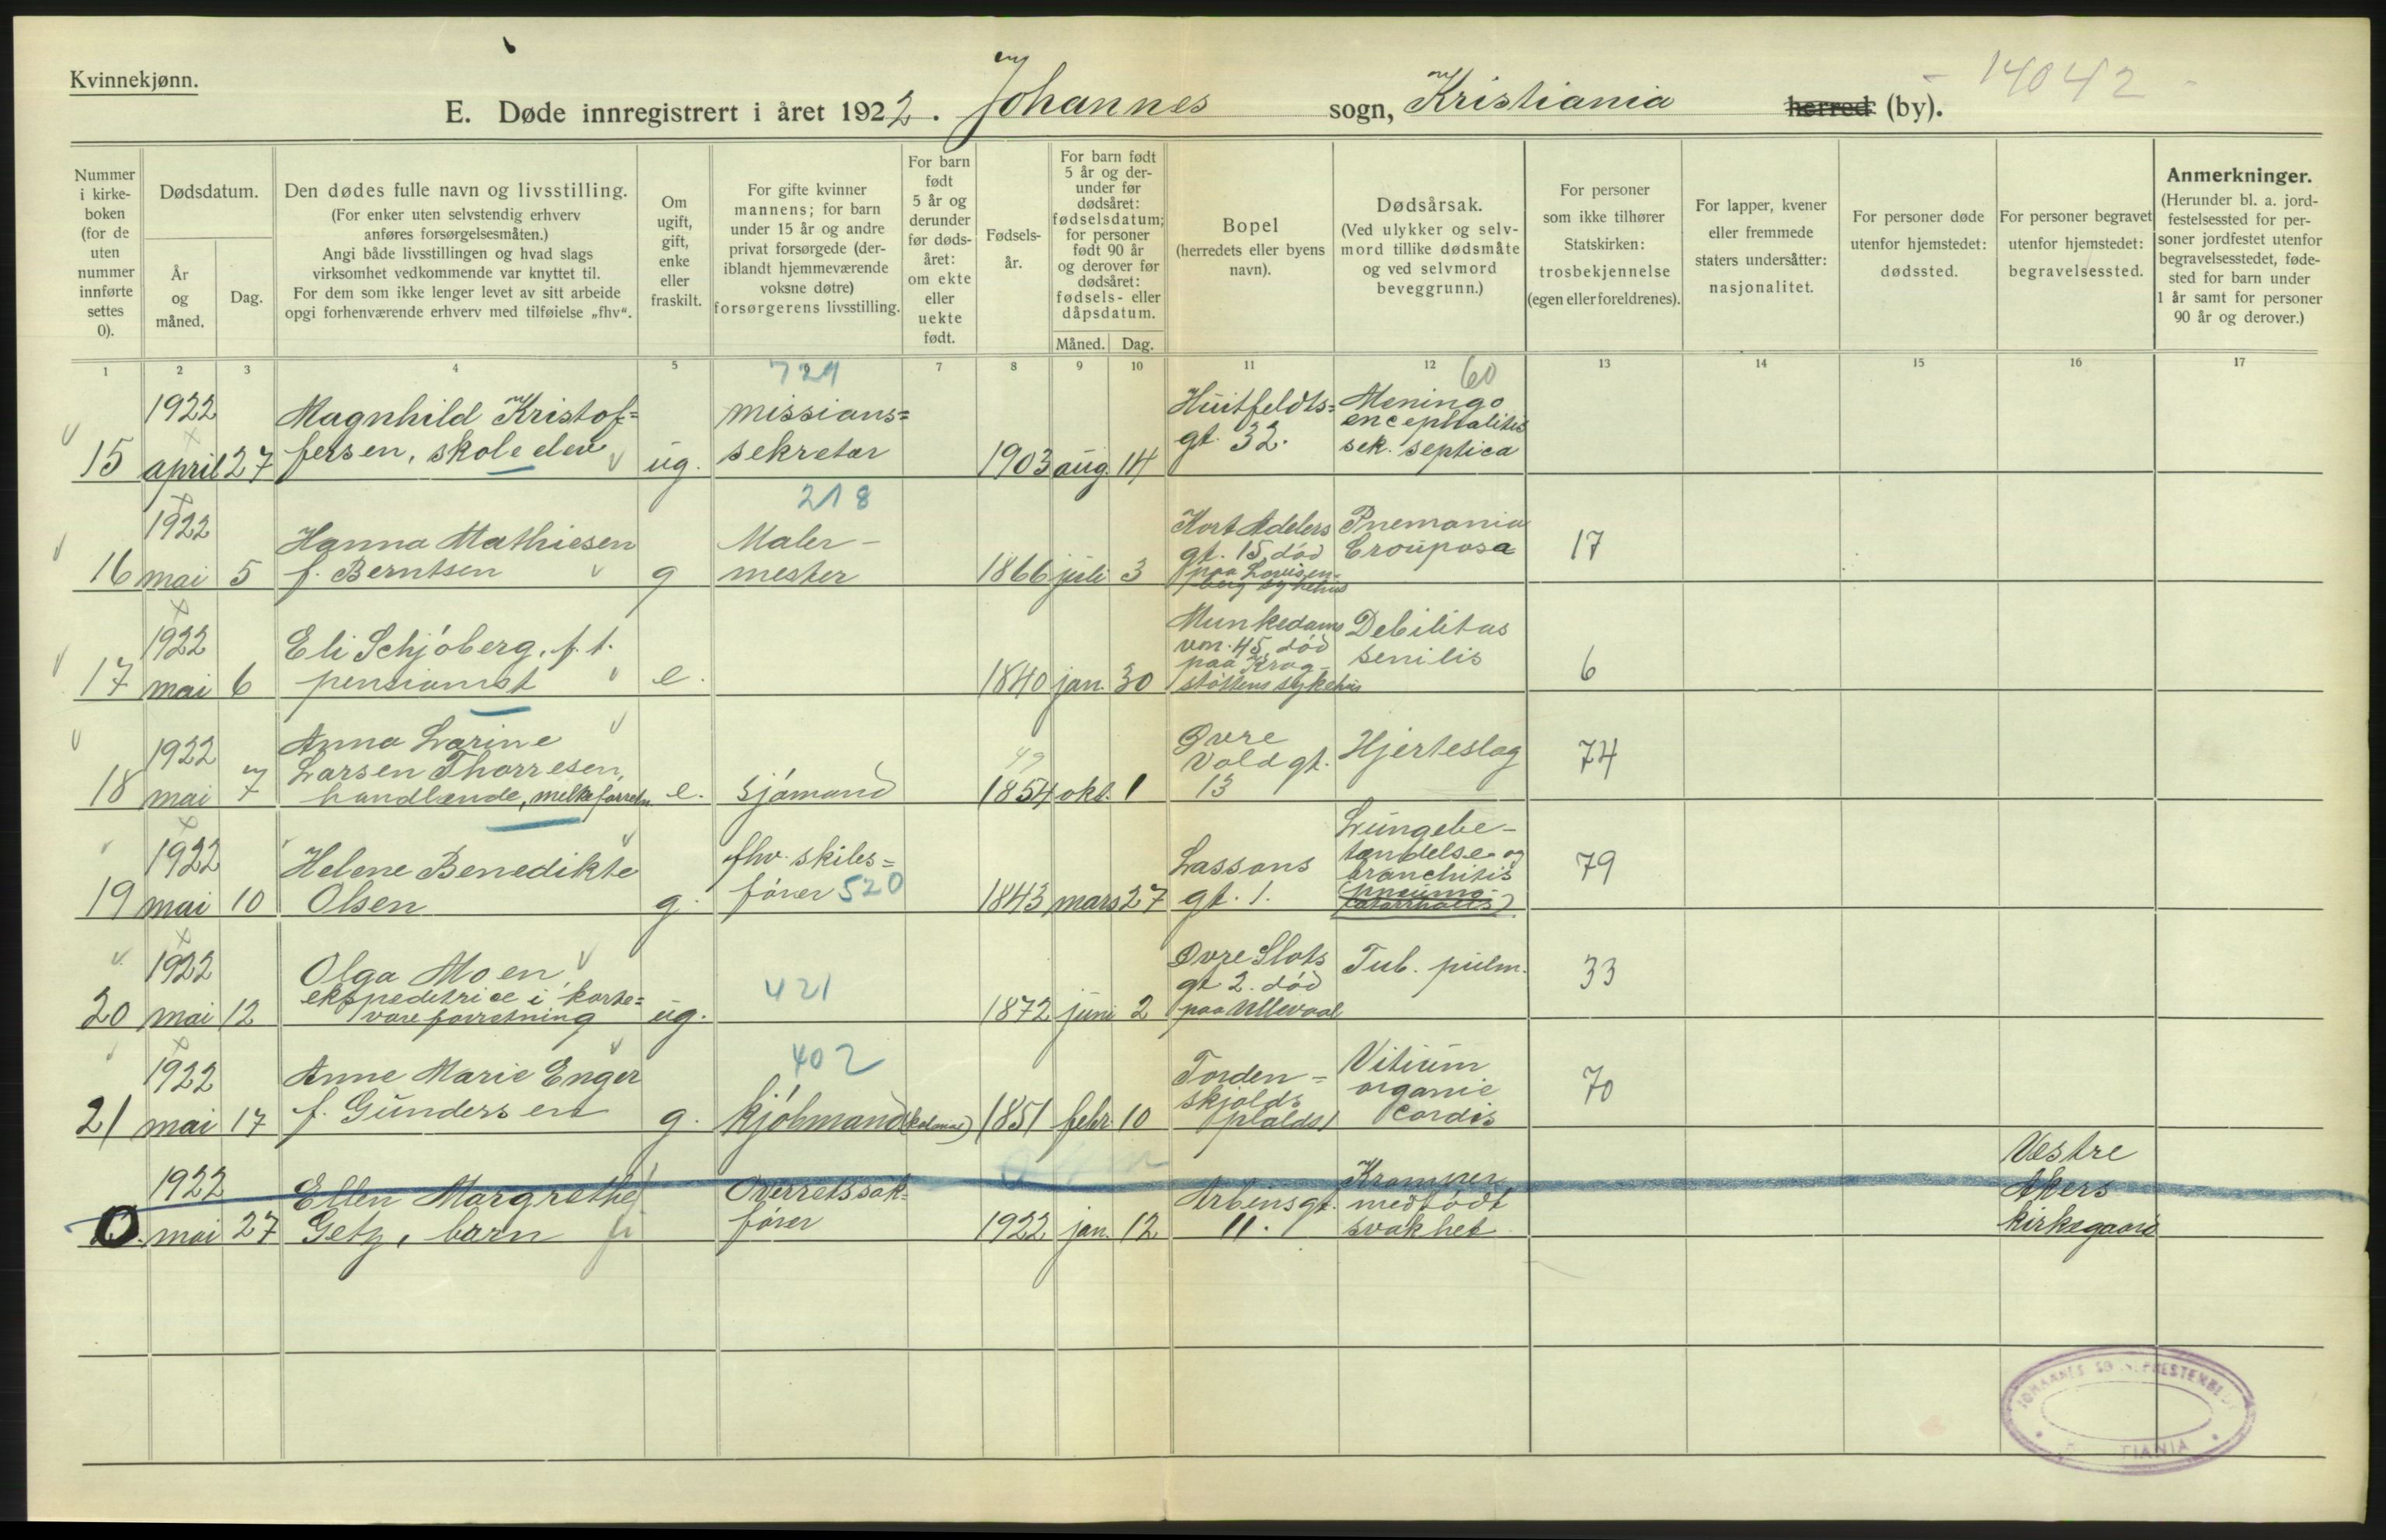 Kvinnekjønn.
14042
E. Døde innregistrert i året 1922. Johannes sogn, Kristiania herred (by).
Nummer i kirkeboken (for de uten nummer innførte settes 0).
Dødsdatum.
År og måned.
Dag.
Den dødes fulle navn og livsstilling.
(For enker uten selvstendig erhverv
anføres forsørgelsesmåten.)
Angi både livsstillingen og hvad slags
virksomhet vedkommende var knyttet til.
For dem som ikke lenger levet av sitt arbeide
opgi forhenværende erhverv med tilføielse „fhv“.
Om
ugift,
gift,
enke
eller
fraskilt.
For gifte kvinner
mannens; for barn
under 15 år og andre
privat forsørgede (der-
iblandt hjemmeværende
voksne døtre)
forsørgerens livsstilling.
For barn
født
5 år og
derunder
før døds-
året:
om ekte
eller
uekte
født.
Fødsels-
år.
For barn født
5 år og der-
under før
dødsåret:
fødselsdatum;
for personer
født 90 år
og derover før
dødsåret:
fødsels- eller
dåpsdatum.
Måned. Dag.
Bopel
(herredets eller byens
navn).
Dødsårsak.
(Ved ulykker og selv-
mord tillike dødsmåte
og ved selvmord
beveggrunn.)
For personer
som ikke tilhører
Statskirken:
trosbekjennelse
(egen eller foreldrenes).
For lapper, kvener
eller fremmede
staters undersåtter:
nasjonalitet.
For personer døde
utenfor hjemstedet:
dødssted.
For personer begravet
utenfor hjemstedet:
begravelsessted.
Anmerkninger.
(Herunder bl. a. jord-
festelsessted for per-
soner jordfestet utenfor
begravelsesstedet, føde-
sted for barn under
1 år samt for personer
90 år og derover.)
1 2 3 4 5 6 7 8 9 10 11 12 13 14 15 16 17
15 1922 april 27
Magnhild Kristof=
fersen, skoleelev
ug.
missions=
sekretær
1903 aug. 14
Huitfeldts=
gt. 32.
60
Meningo
encephalitis
sek. septica
16 1922 mai 5
Hanna Mathiesen
f. Berntsen
g
218
Maler-
mester
1866 juli 3
Kort Adelers
gt. 15, død
paa Lovisen-
berg sykehus
Pnemonia
Crouposa
17
17 1922 mai 6
Eli Schjøberg, f. t.
pensionist
e.
1840 jan. 30
Munkedams
vn. 45, død
paa Krog-
støttens sykehus
Debilitas
senilis
6
18 1922 mai 7
Anna Larine
Larsen Thorresen,
handlende, melkeforretn.
e.
sjømand
1854 okt. 1
Øvre
Voldgt.
13
Hjerteslag
74
19 1922 mai 10
Helene Benedikte
Olsen
g.
fhv. skibs=
fører 520
1843 mars 27
Lassons
gt. 1.
Lungebe-
tændelse og
bronchitis
79
20 1922 mai 12
Olga Moen,
ekspeditrice i korte=
vareforretning
ug.
421
1872 juni 2
Øvre Slots
gt 2. død
paa Ullevaal
Tub. pulm.
33
21 1922 mai 17
Anne Marie Enger
f. Gundersen
g.
402
kjøbmand (kolonial)
1851 febr. 10
Torden=
skjolds
plads 1
Vitium
organic
Cordis
70
0. 1922 mai 27
Ellen Margrethe
Getz, barn
Overretssak=
fører
1922 jan. 12
Arbinsgt.
11.
Kramper
medfødt
svakhet
Vestre
Akers
kirkegaard